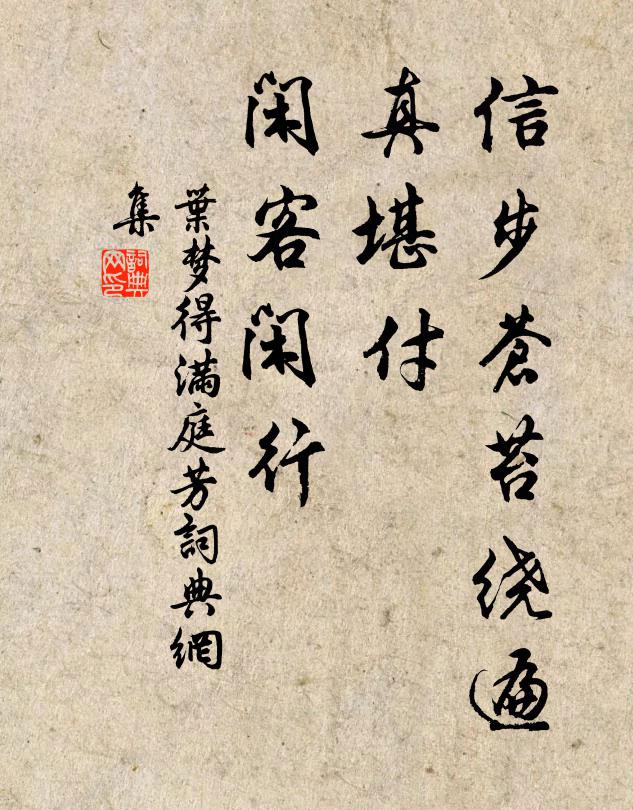 信步苍苔绕遍
真堪付
闲客闲行
葉梦得满庭芳詞典網
集
詞典網印